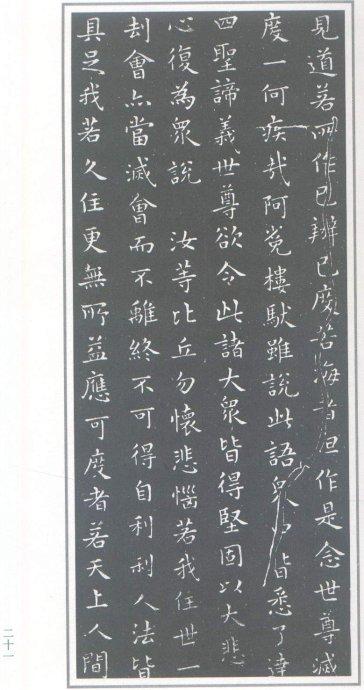 見道若所作已辦已度苦海者但作是念世尊滅
度一何疾哉阿㝹樓馱雖說此語眾中皆悉了達
四聖諦義世尊欲令此諸大眾皆得堅固以大悲
心復為眾說 汝等比丘勿懷悲惱若我住世一
劫會亦當滅會而不離終不可得自利利人法皆
具足我若久住更無所益應可度者若天上人間
二十一